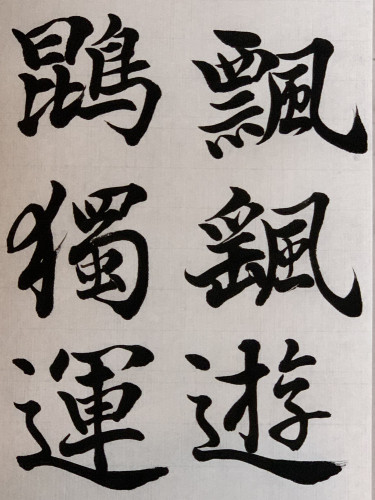 飄颻遊
鵾獨運